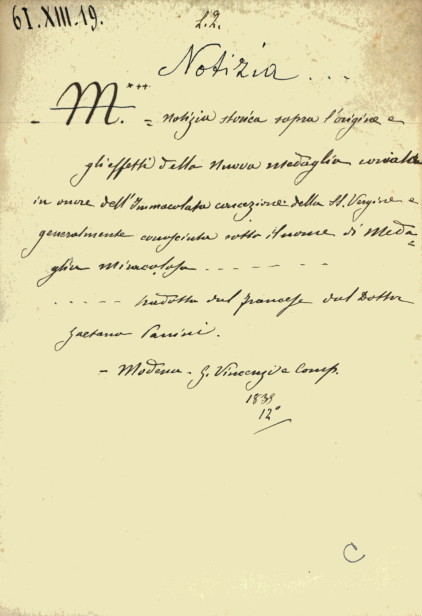 61.XIII.19.
L.2.
Notizia ...
- M.*** = notizia storica sopra l'origine e
gli effetti della nuova medaglia coniata
in onore dell'Immacolata concezione della SS. Vergine e
generalmente conosciuta sotto il nome di Meda=
glia miracolosa - - - - - -
- - - - - tradotta dal francese dal Dottor
Gaetano Parini.
- Modena - G. Vincenzi e Comp.
12°
C